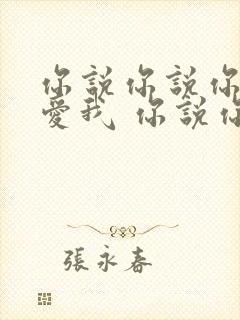 你說你說你
愛我 你說你
張永春